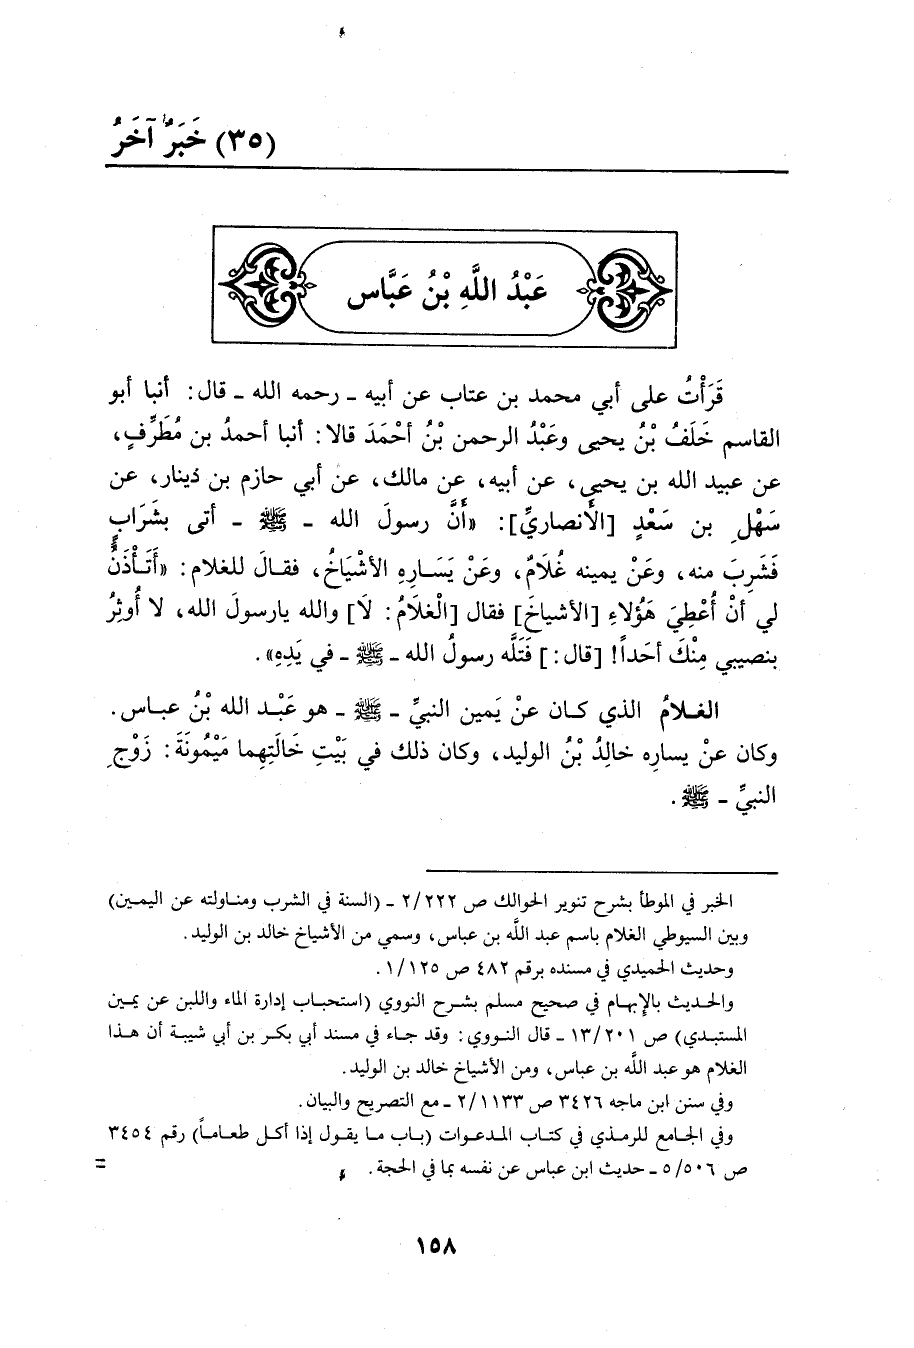 (٣٥) خَبَرٌ آخَرُ
عَبْدُ اللَّهِ بْنُ عَبَّاس
قَرَأْتُ على أبي محمد بن عتاب عن أبيه ـ رحمه الله ـ قال: أنبا أبو
القاسم خَلَفُ بْنُ يحيى وعَبْدُ الرحمن بْنُ أحْمَدَ قالا: أنبا أحمدُ بن مُطَرِّفٍ،
عن عبيد الله بن يحيى، عن أبيه، عن مالك، عن أبي حازم بن دينار، عن
سَهْلِ بن سَعْدٍ [الأنصاريِّ]: «أنَّ رسولَ الله ـ ﷺ ـ أتى بشَرَابٍ
فَشَرِبَ منه، وعَنْ يمينه غُلَامٌ، وعَنْ يَسَارِهِ الأشْيَاخُ، فقالَ للغلام: «أتَأْذَنُ
لي أنْ أُعْطِيَ هَؤُلاءِ [الأشياخَ] فقال [الْغلَامُ: لَا] والله يارسولَ الله، لا أُوثِرُ
بنصيبي مِنْكَ أحَداً! [قال:] فَتَلَّه رسولُ الله ـ ﷺ ـ في يَدِهِ».
الغلامُ الذي كان عنْ يَمين النبيِّ ـ ﷺ ـ هو عَبْد الله بْنُ عباس.
وكان عنْ يسارِه خالِدُ بْنُ الوليد، وكان ذلك في بَيْتِ خَالَتِهما مَيْمُونَةَ: زَوْجِ
النبيِّ ـ ﷺ.
الخبر في الموطأ بشرح تنوير الحوالك ص ٢/٢٢٢ ـ (السنة في الشرب ومناولته عن اليمين)
وبين السيوطي الغلام باسم عبد اللَّه بن عباس، وسمي من الأشياخ خالد بن الوليد.
وحديث الحميدي في مسنده برقم ٤٨٢ ص ١/١٢٥.
والحديث بالإبهام في صحيح مسلم بشرح النووي (استحباب إدارة الماء واللبن عن يمين
المستبدي) ص ١٣/٢٠١ ـ قال النووي: وقد جاء في مسند أبي بكر بن أبي شيبة أن هذا
الغلام هو عبد اللَّه بن عباس، ومن الأشياخ خالد بن الوليد.
وفي سنن ابن ماجه ٣٤٢٦ ص ٢/١١٣٣ ـ مع التصريح والبيان.
وفي الجامع للرمذي في كتاب الدعوات (باب ما يقول إذا أكل طعاماً) رقم ٣٤٥٤
ص ٥/٥٠٦ ـ حديث ابن عباس عن نفسه بما في الحجة. =
١٥٨